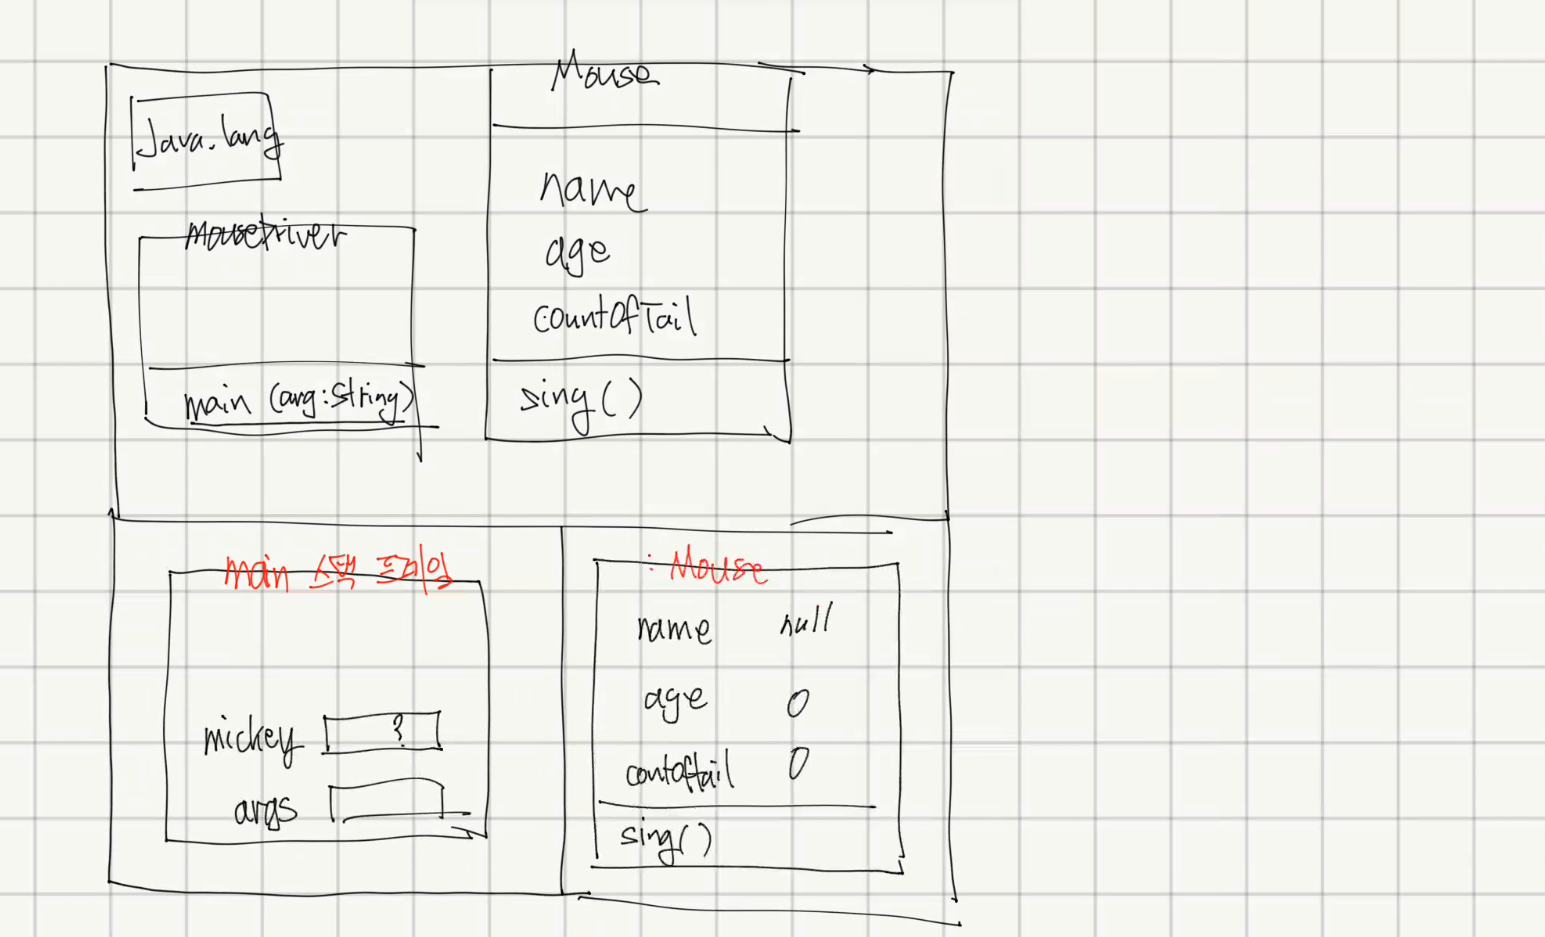 Mouse
Java.lang
name
MouseDriver
age
countOfTail
main (arg:String)
sing()
main 스택 프레임
: Mouse
name null
age 0
mickey ?
contoftail 0
args
sing()